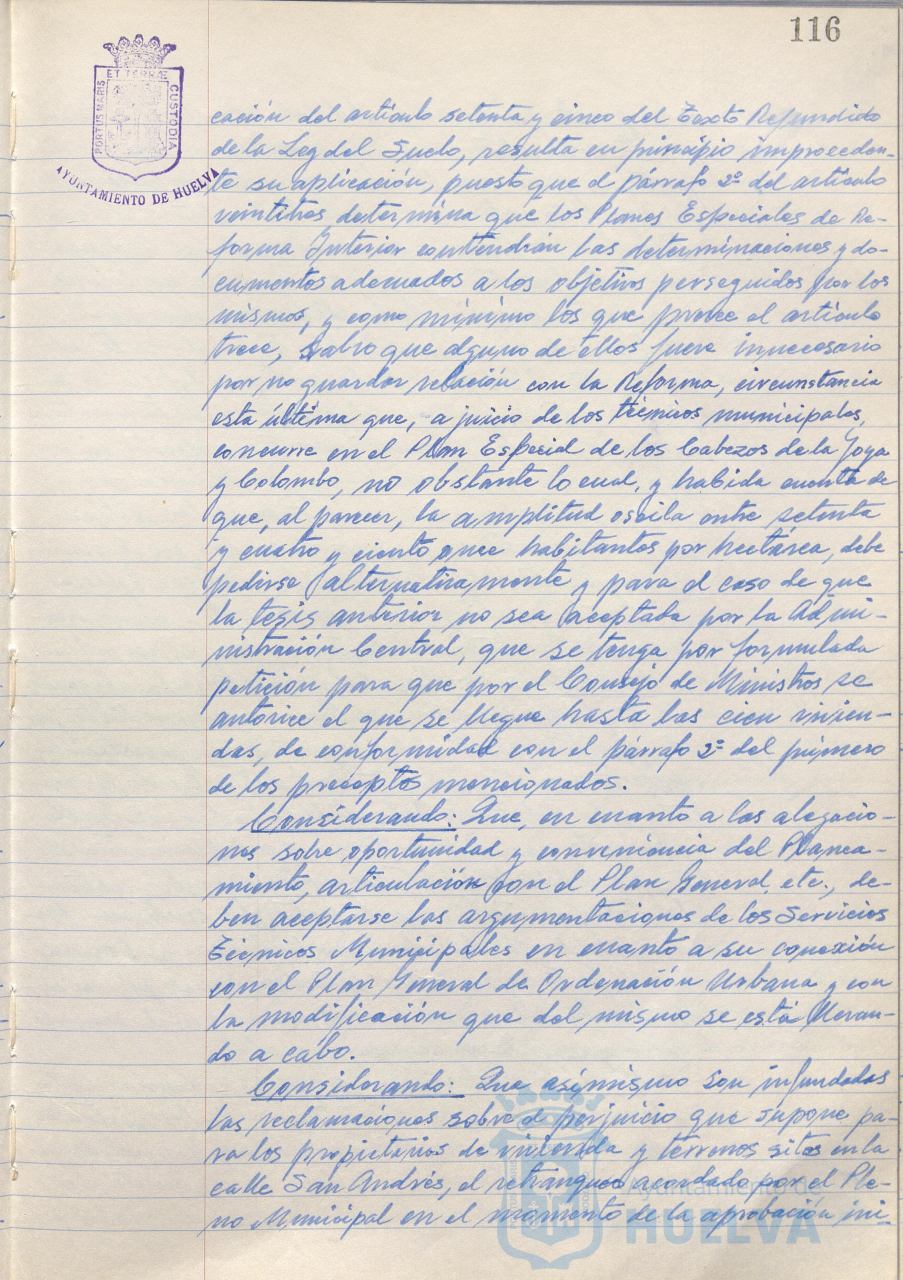 116
PORTUS MARIS ET TERRÆ CUSTODIA
AYUNTAMIENTO DE HUELVA
cación del artículo setenta y cinco del Texto Refundido
de la Ley del Suelo, resulta en principio improceden-
te su aplicación, puesto que el párrafo 2º del artículo
veintitres determina que los Planes Especiales de Re-
forma Interior contendrán las determinaciones y do-
cumentos adecuados a los objetivos perseguidos por los
mismos, y como mínimo los que prevee el artículo
trece, salvo que alguno de ellos fuera innecesario
por no guardar relación con la Reforma, circunstancia
esta última que, a juicio de los técnicos municipales,
concurre en el Plan Especial de los Cabezos de la Joya
y Colombo, no obstante lo cual, y habida cuenta de
que, al parecer, la amplitud oscila entre setenta
y cuatro y ciento once habitantes por hectárea, debe
pedirse alternativamente y para el caso de que
la tesis anterior no sea aceptada por la Admi-
nistración Central, que se tenga por formulada
petición para que por el Consejo de Ministros se
autorice el que se llegue hasta las cien vivien-
das, de conformidad con el párrafo 2º del primero
de los preceptos mencionados.
Considerando: Que, en cuanto a las alegacio-
nes sobre oportunidad y conveniencia del Planea-
miento, articulación con el Plan General, etc., de-
ben aceptarse las argumentaciones de los Servicios
Técnicos Municipales en cuanto a su conexión
con el Plan General de Ordenación Urbana y con
la modificación que del mismo se está llevan-
do a cabo.
Considerando: Que asimismo son infundadas
las reclamaciones sobre el perjuicio que supone pa-
ra los propietarios de vivienda y terrenos sitos en la
calle San Andrés, el retranqueo acordado por el Ple-
no Municipal en el momento de la aprobación ini-
Ayuntamiento de
HUELVA